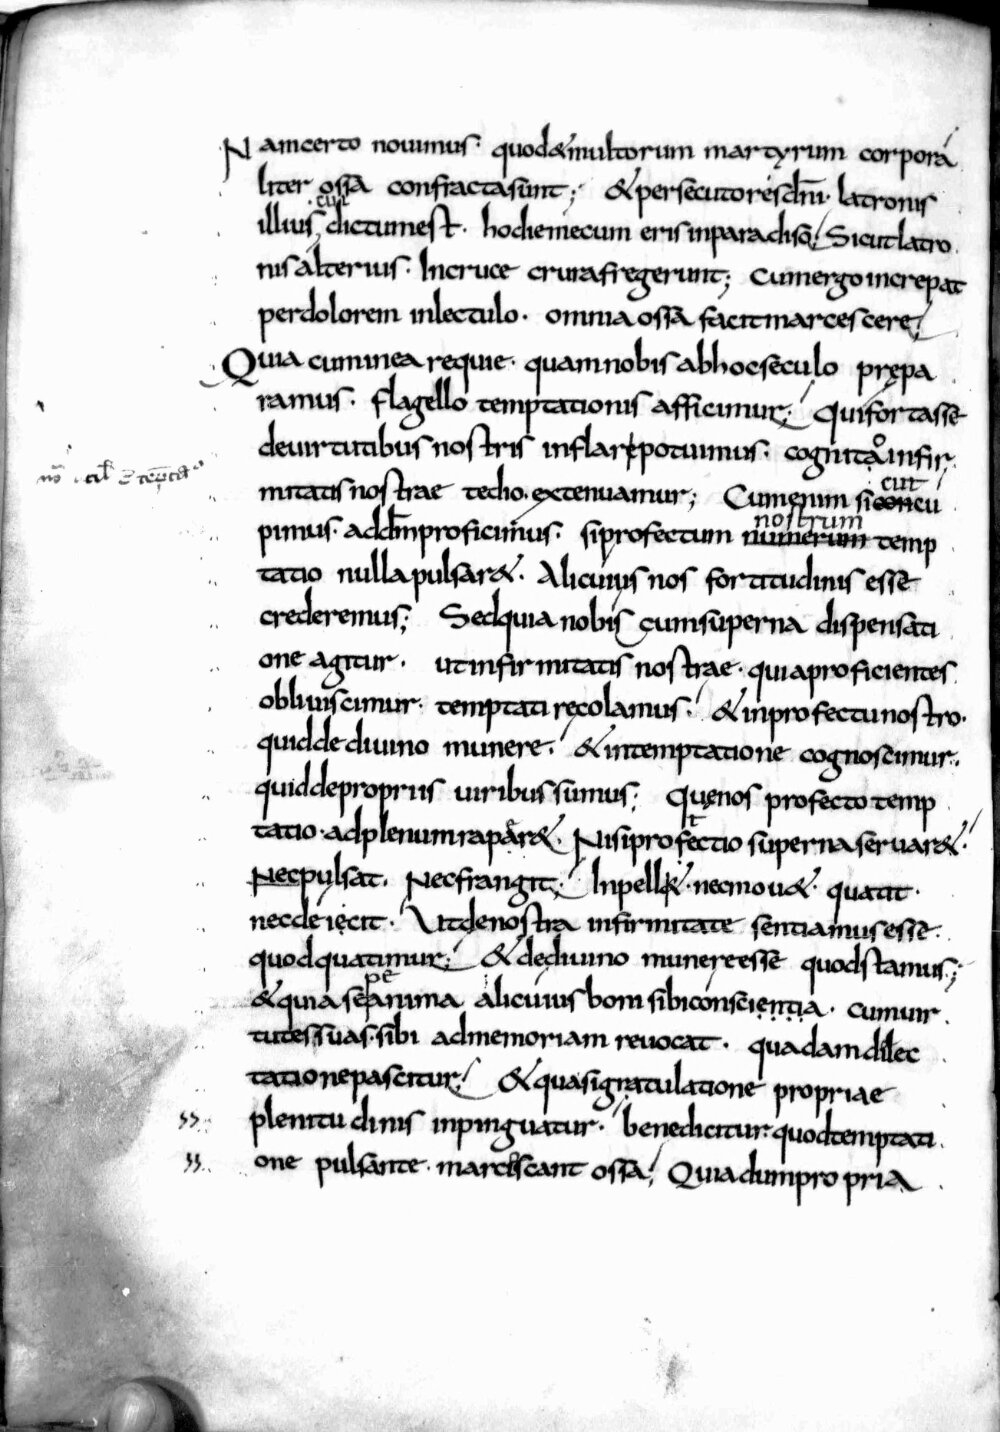 Nam certo nouimus· quod & multorum martyrum corpora
liter ossa confracta sunt; & persecutores dn̄i· latronis
illius, cui dictum est· hodie mecum eris in paradiso; Sicut latro
nis alterius· In cruce crura fregerunt; Cum ergo increpat
per dolorem in lectulo· omnia ossa facit marcescere;
Quia cum in ea requie· quam nobis ab hoc seculo prępa
ramus· flagello temptationis afficimur; Qui fortasse
de uirtutibus nostris inflari potuimus· cognita infir
mitatis nostrae tedio· extenuamur; Cum enim sicut cu
pimus· ad dm̄ proficimus· si profectum nostrum temp
tatio nulla pulsar&· Alicuius nos fortitudinis esse
crederemus; Sed quia nobis cum superna dispensati
one agitur· ut infirmitatis nostrae· quia proficientes
obliuiscimur· temptati recolamus; & in profectu nostro·
quid de diuino munere; & in temptatione cognoscimur·
quid de propriis uiribus sumus; Quę nos profecto temp
tatio· ad plenum raper&· Nisi protectio superna seruar&·
Nec pulsat· Nec frangit; Inpell&· nec mou&· quatit·
nec deiecit· Vt de nostra infirmitate sentiamus esse·
quod quatimur; & de diuino munere esse quod stamus;
& quia sępe anima alicuius boni sibi conscientia· cum uir
tutes suas· sibi ad memoriam reuocat· quadam dilec
tatione pascitur; & quasi gratulatione propriae
plenitudinis inpinguatur· benedicitur· quod temptati
one pulsante· marciscant ossa; Quia dum propria